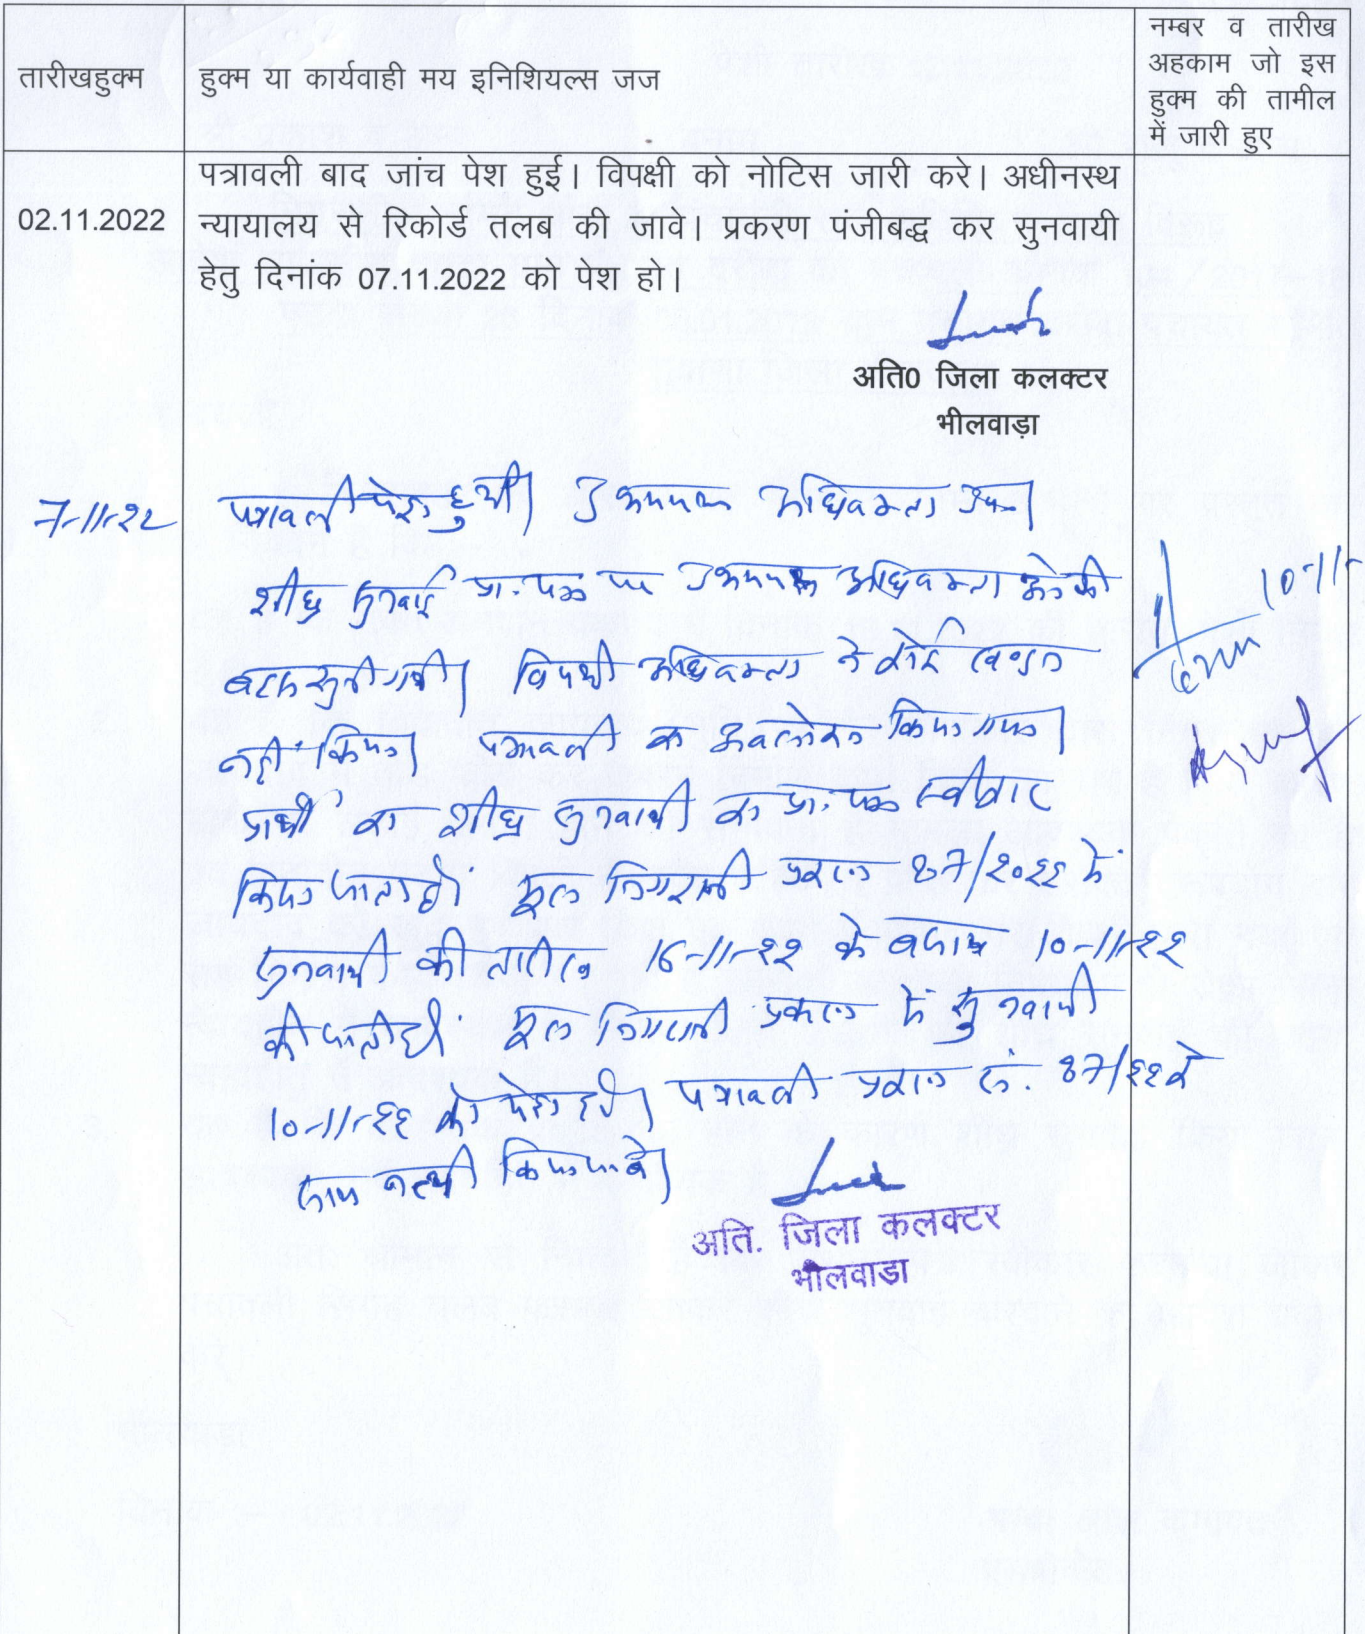 तारीखहुक्म
हुक्म या कार्यवाही मय इनिशियल्स जज
नम्बर व तारीख
अहकाम जो इस
हुक्म की तामील
में जारी हुए
02.11.2022
पत्रावली बाद जांच पेश हुई। विपक्षी को नोटिस जारी करे। अधीनस्थ
न्यायालय से रिकोर्ड तलब की जावे। प्रकरण पंजीबद्ध कर सुनवायी
हेतु दिनांक 07.11.2022 को पेश हो।
अति0 जिला कलक्टर
भीलवाड़ा
7-11-22
पत्रावली पेश हुयी। उभयपक्ष अधिवक्ता उप.।
शीघ्र सुनवाई प्रा. पत्र पर उभयपक्ष अधिवक्ता की
बहस सुनी गयी। विपक्षी अधिवक्ता ने कोई खण्डन
नहीं किया। पत्रावली का अवलोकन किया गया।
प्रार्थी का शीघ्र सुनवायी का प्रा. पत्र स्वीकार
किया जाता है। मूल निगरानी प्रकरण 87/2022 में
सुनवायी की तारीख 16-11-22 के बजाय 10-11-22
की जाती है। मूल निगरानी प्रकरण में सुनवायी
10-11-22 को पेश हो। पत्रावली प्रकरण सं. 87/22 के
साथ नत्थी किया जावे।
अति. जिला कलक्टर
भीलवाडा
10-11-